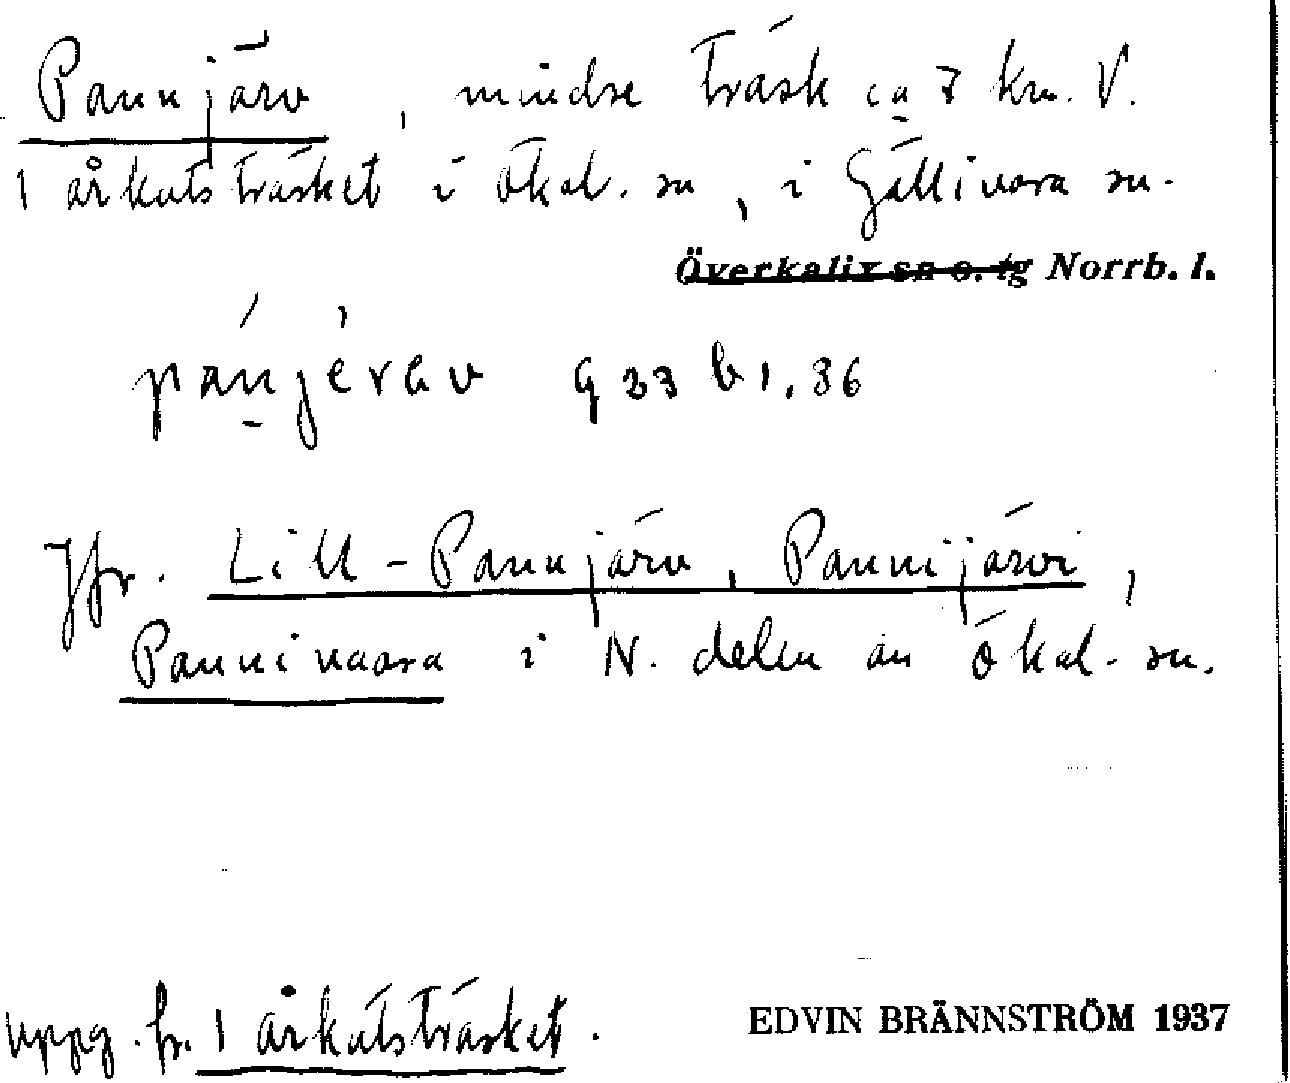 Pannjärv, mindre träsk ca 7 km. V.
Jårkatsträsket i Ökal. sn, i Gällivara sn.
Överkalix sn o. tg Norrb. l.
g 33 b 1.36
Jfr. Lill-Pannjärv, Pannijärvi,
Pannivaara i N. delen av Ökal. sn.
uppg. fr. Jårkatsträsket.
EDVIN BRÄNNSTRÖM 1937